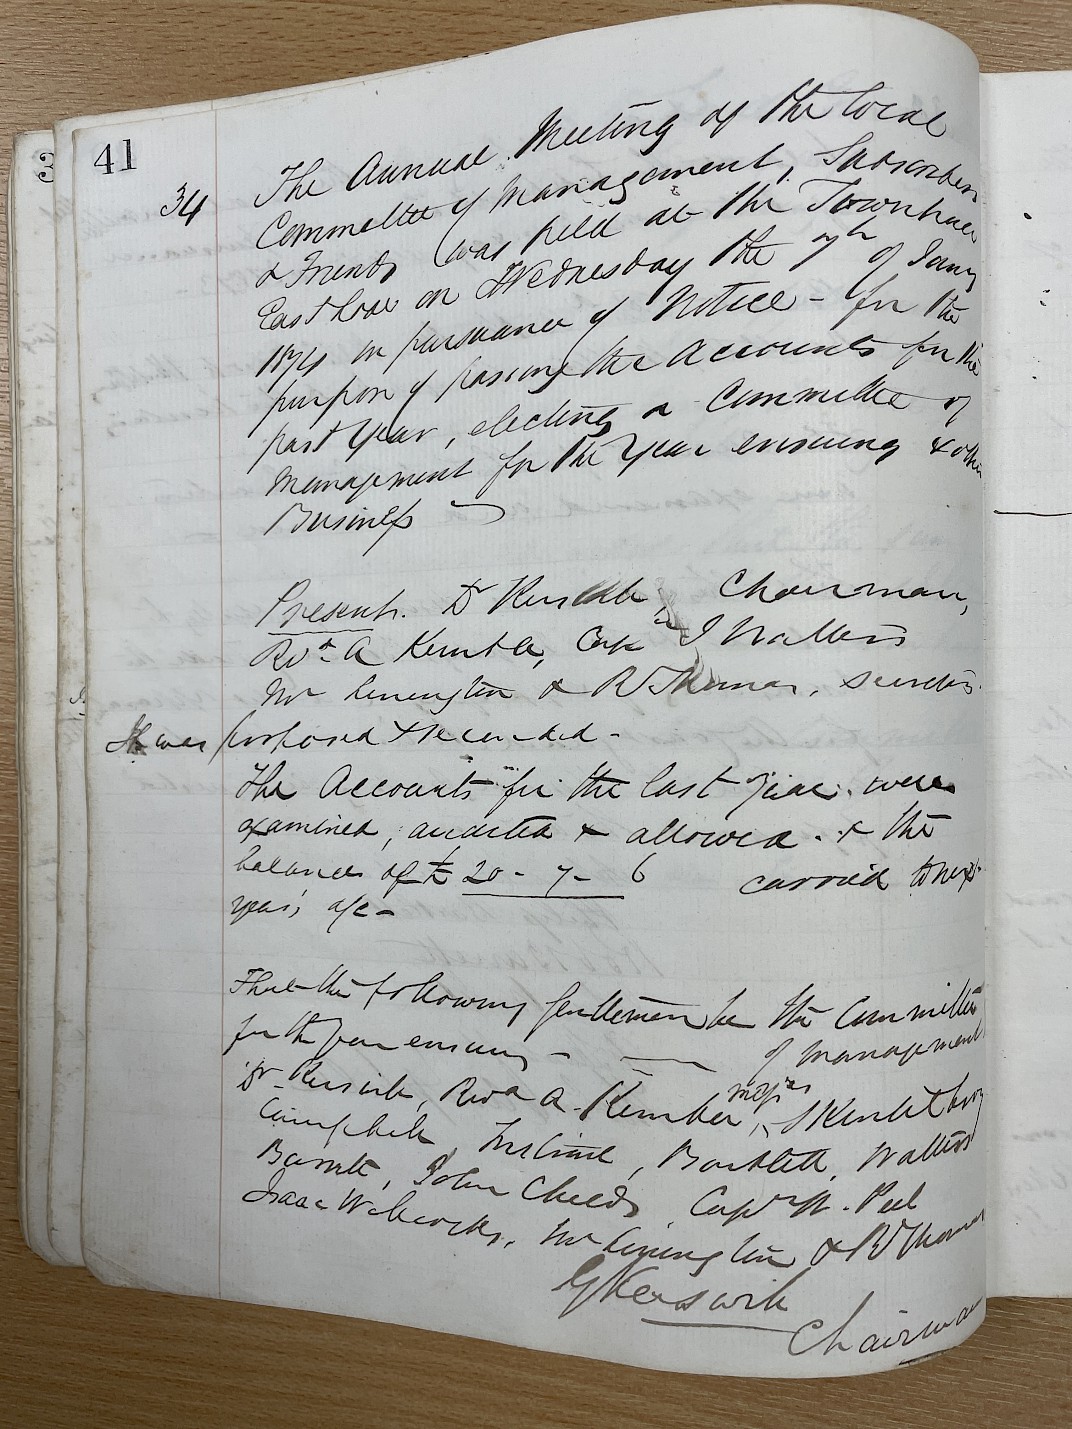 41
34
The Annual Meeting of the Local
Committee of Management, Subscribers
& Friends was held at the Townhall
East Looe on Wednesday the 7th of Jany
1874 in pursuance of Notice - for the
purpose of passing the Accounts for the
past Year, electing a Committee of
Management for the Year ensuing & other
Business
Present. Dr Kerswill, Chairman,
Revd A Kember, Cap J Walters
Mr Linington & R Thomas, Secretrs.
It was proposed & seconded -
The Accounts for the last Year were
examined, audited & allowed. & the
balance of £20 - 7 - 6 carried to next
year's a/c -
That the following Gentlemen be the Committee
for the year ensuing - of Management
Dr Kerswill, Revd A. Kember, Messrs
Campbell, Bartlett, Walters
Barrett, John Childs Capn W. Peel
Isaac Wilcocks, Mr Linington & R Thomas
G Kerswill
Chairman